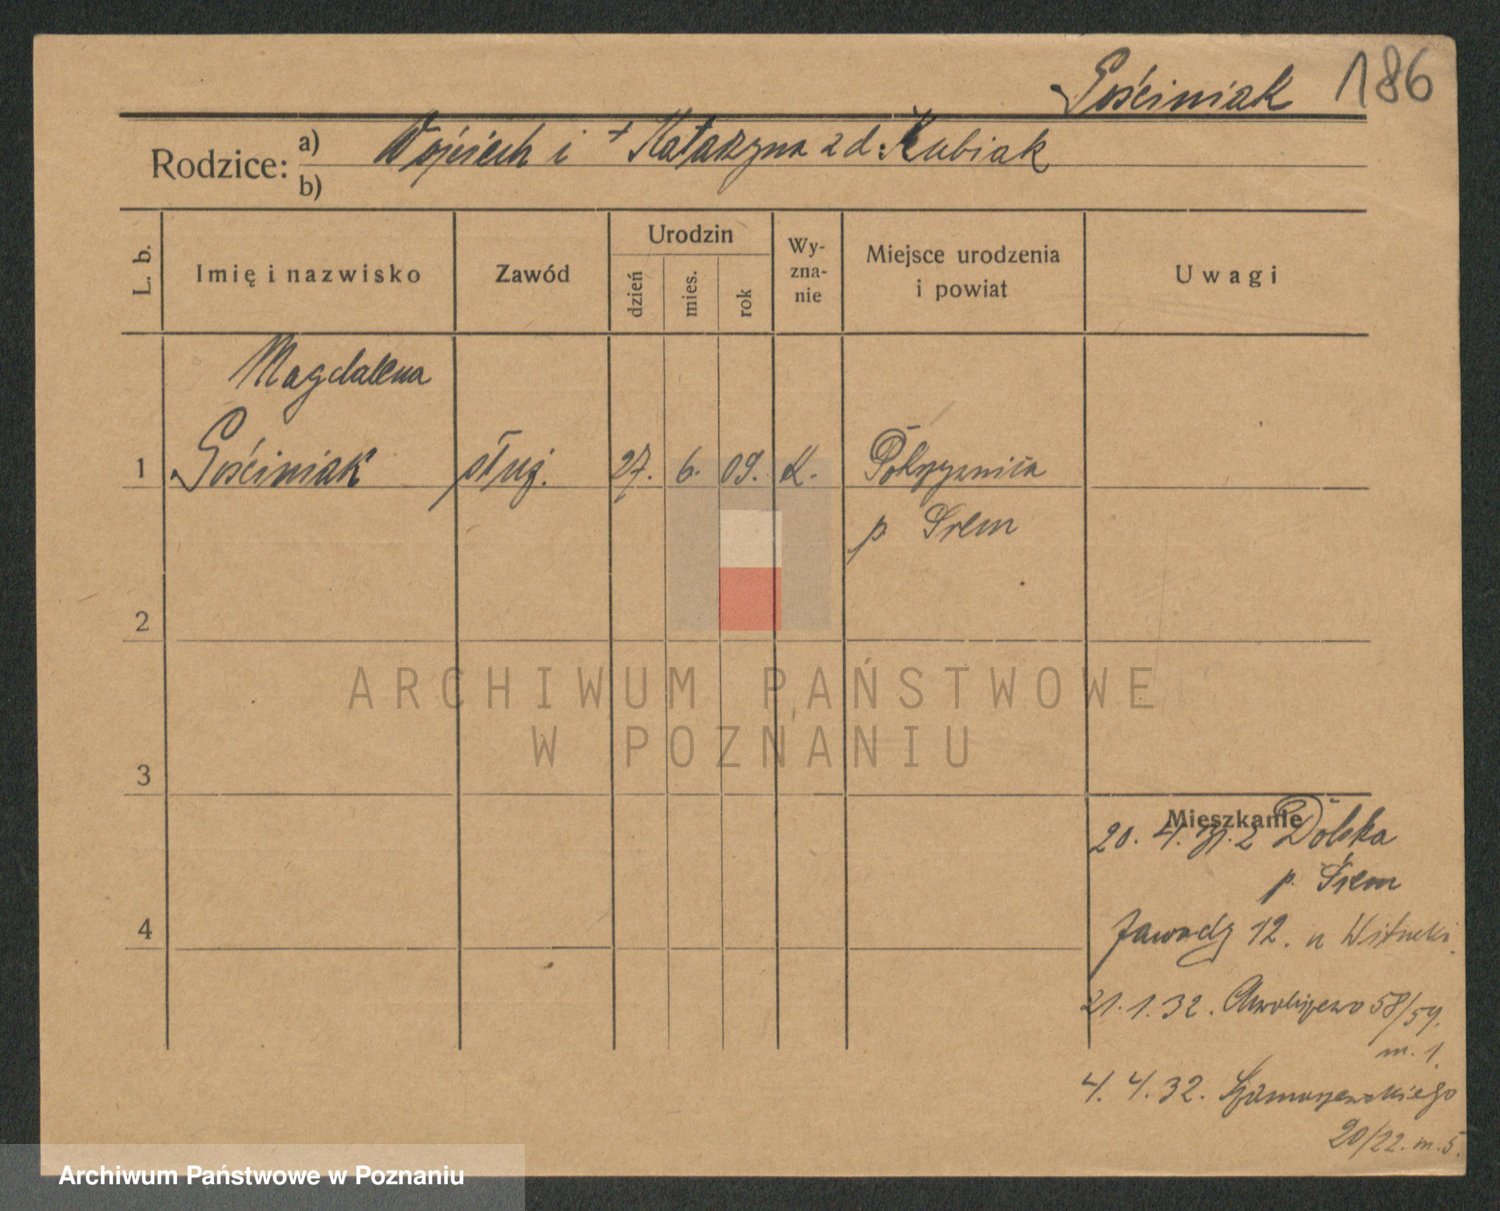 Gościniak 186
Rodzice: a) Wojciech i + Katarzyna z d. Kubiak
b)
L. b.
Imię i nazwisko
Zawód
Urodzin
dzień
mies.
rok
Wy-
zna-
nie
Miejsce urodzenia
i powiat
Uwagi
Magdalena
1 Gościniak służ. 27. 6. 09. K.
p Śrem
2
ARCHIWUM PAŃSTWOWE
W POZNANIU
3
Mieszkanie
20. 4. 31. z Dolska
p. Śrem
4
Zawady 12. u
21. 1. 32. 58/59.
m. 1.
4. 4. 32. Szamarzewskiego
20/22. m. 5.
Archiwum Państwowe w Poznaniu